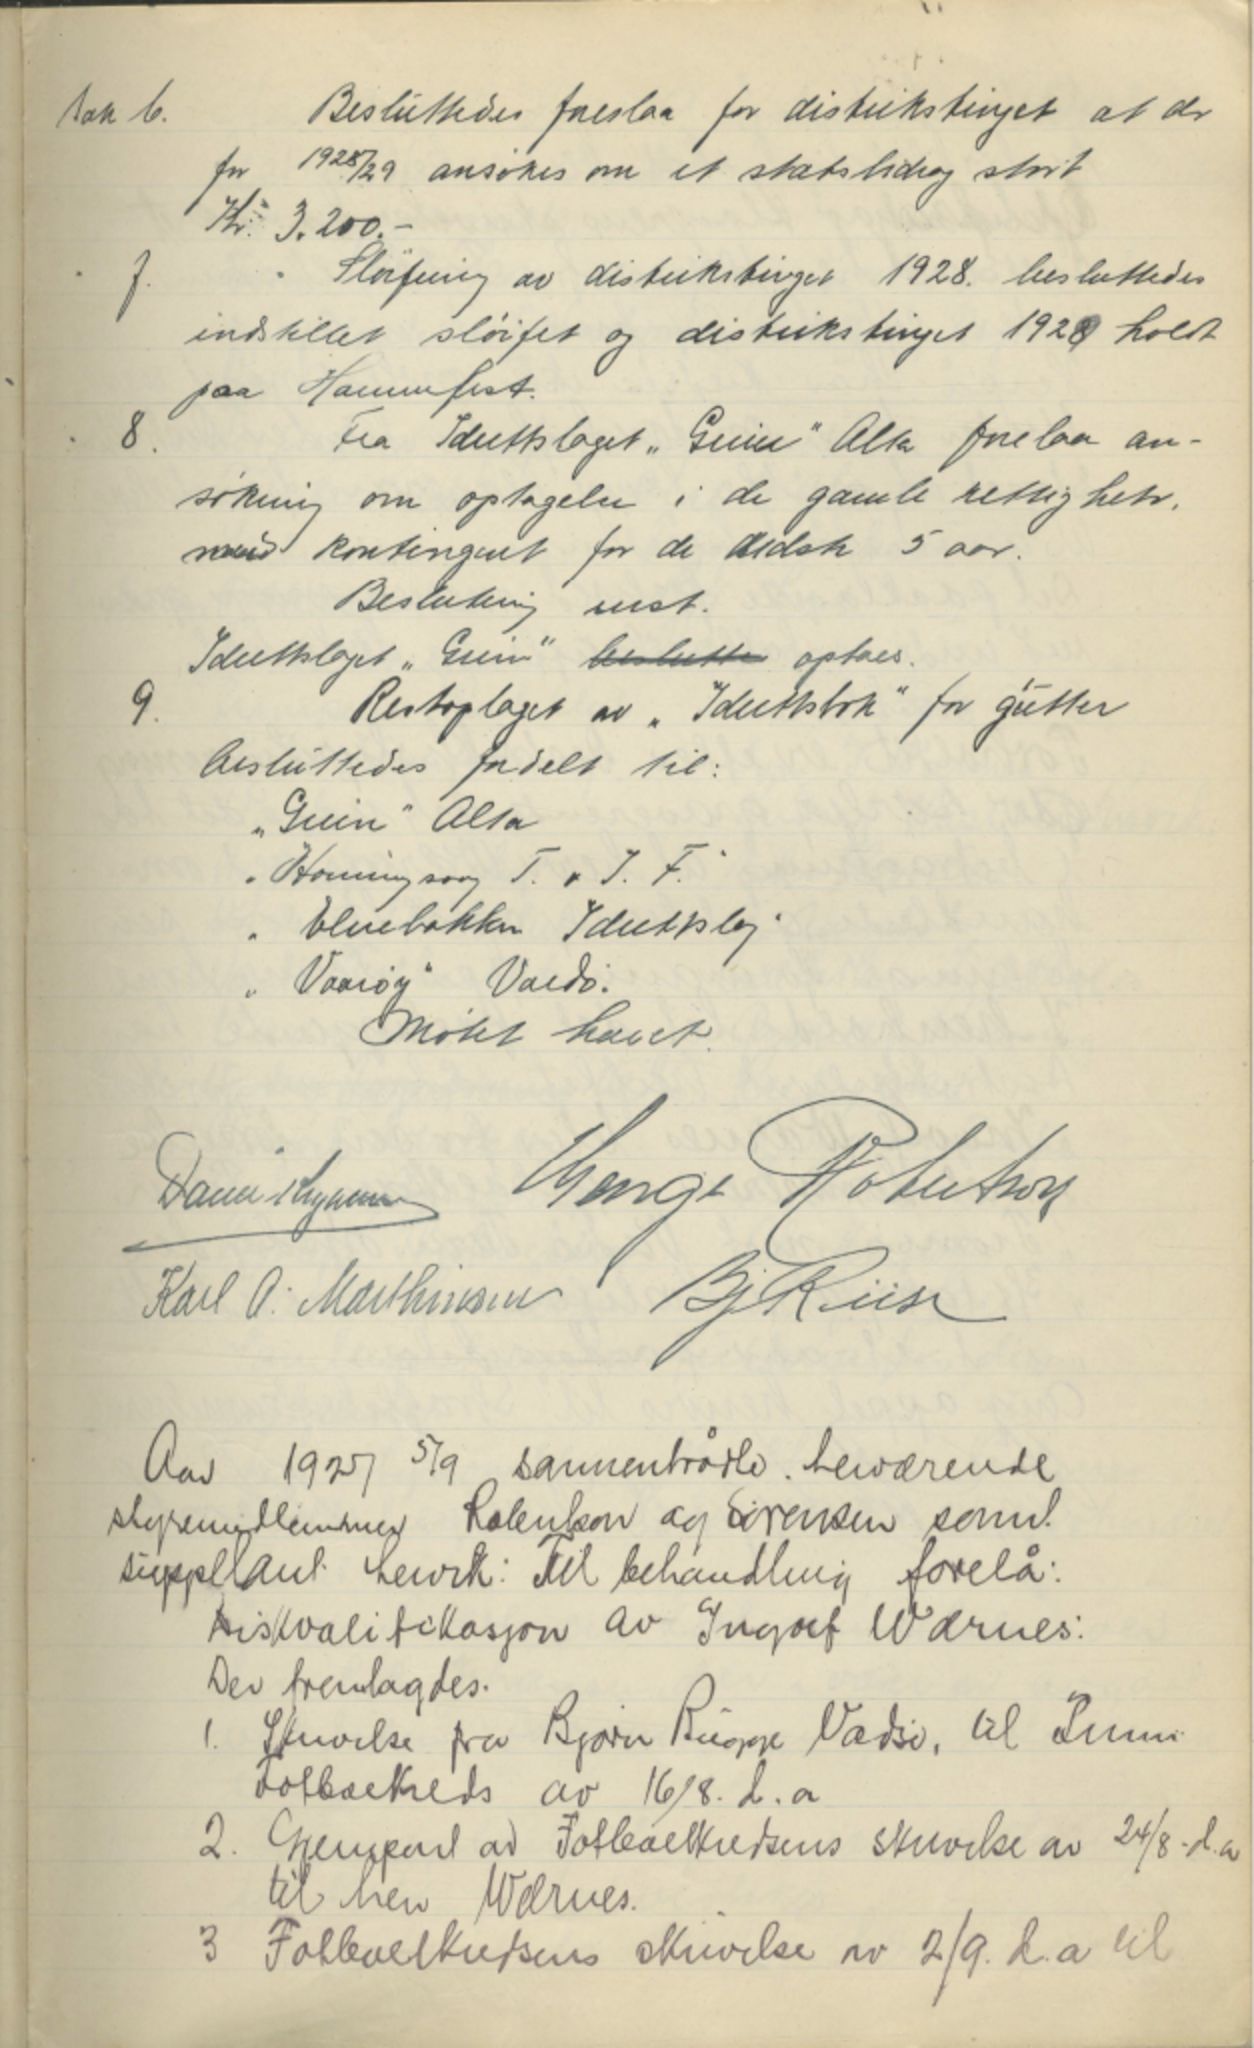 Sak 6. Besluttedes foreslaa for distrikstinget at der
for 1928/29 ansøkes om et statsbidrag stort
Kr. 3.200.-
" 7. Sløifning av distrikstinget 1928. besluttedes
indstillet sløifet og distrikstinget 1929 holdt
paa Hammerfest.
" 8. Fra Idrettslaget „Grein" Alta forelaa an-
søkning om optagelse i de gamle rettigheter,
kontingent for de sidste 5 aar.
Beslutning enst.
Idrettslaget „Grein" beslutte optaes.
9. Restoplaget av „Idrettsbok" for gutter
besluttedes fordelt til:
„Grein" Alta
„Honningsvaag T. & I. F."
„Elvebakken Idrettslag"
„Vaarøy" Vardø.
Møtet hævet.
George Robertson
Karl A. Marthinsen Bj Riise
Aar 1927 5/9 sammentrådte herværende
styremedlemmer Robertson og Sørensen samt
suppleant Lervik: Til behandling forelå:
Diskvalifikasjon av Ingolf Wærnes:
Der fremlagdes.
1. Skrivelse fra Bjørn Bugge Vadsø, til Finm.
Fotbalkreds av 16/8. d.a
2. Gjenpart av Fotballkredsens skrivelse av 24/8-d.a
til herr Wærnes.
3 Fotballkredsens skrivelse av 2/9. d.a til